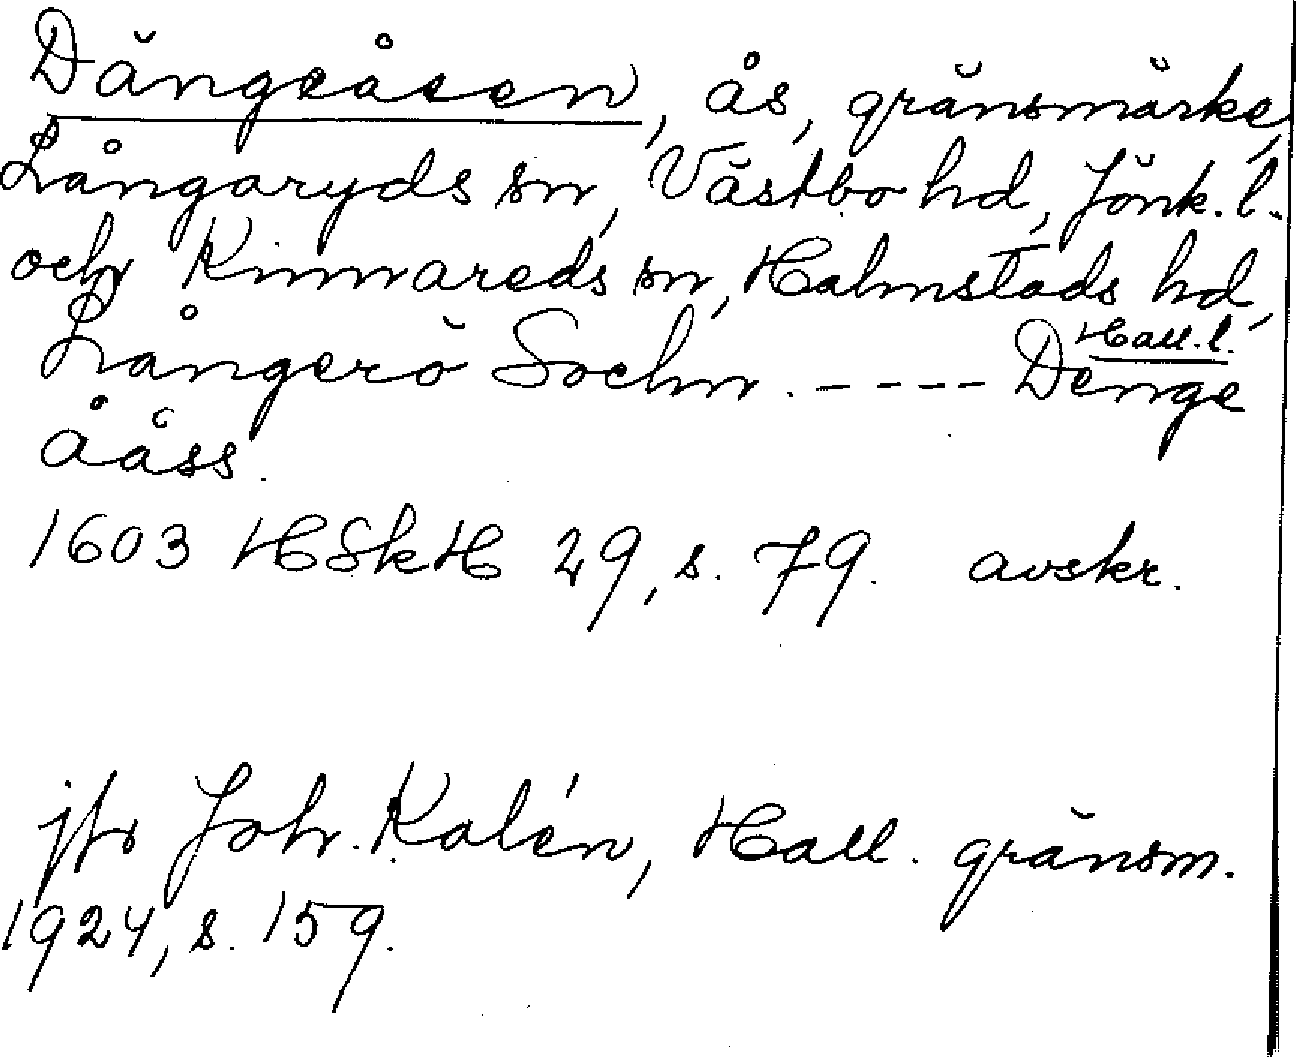 Dängeåsen, ås, gränsmärke,
Långaryds sn, Västbo hd, Jönk. l.
och Kinnareds sn, Halmstads hd,
Hall. l.
Långerö Sochn. ---- Denge
ååss.
1603 HSkH 29, s. 79. avskr.
jfr Joh. Kalén, Hall. gränsm.
1924, s. 159.